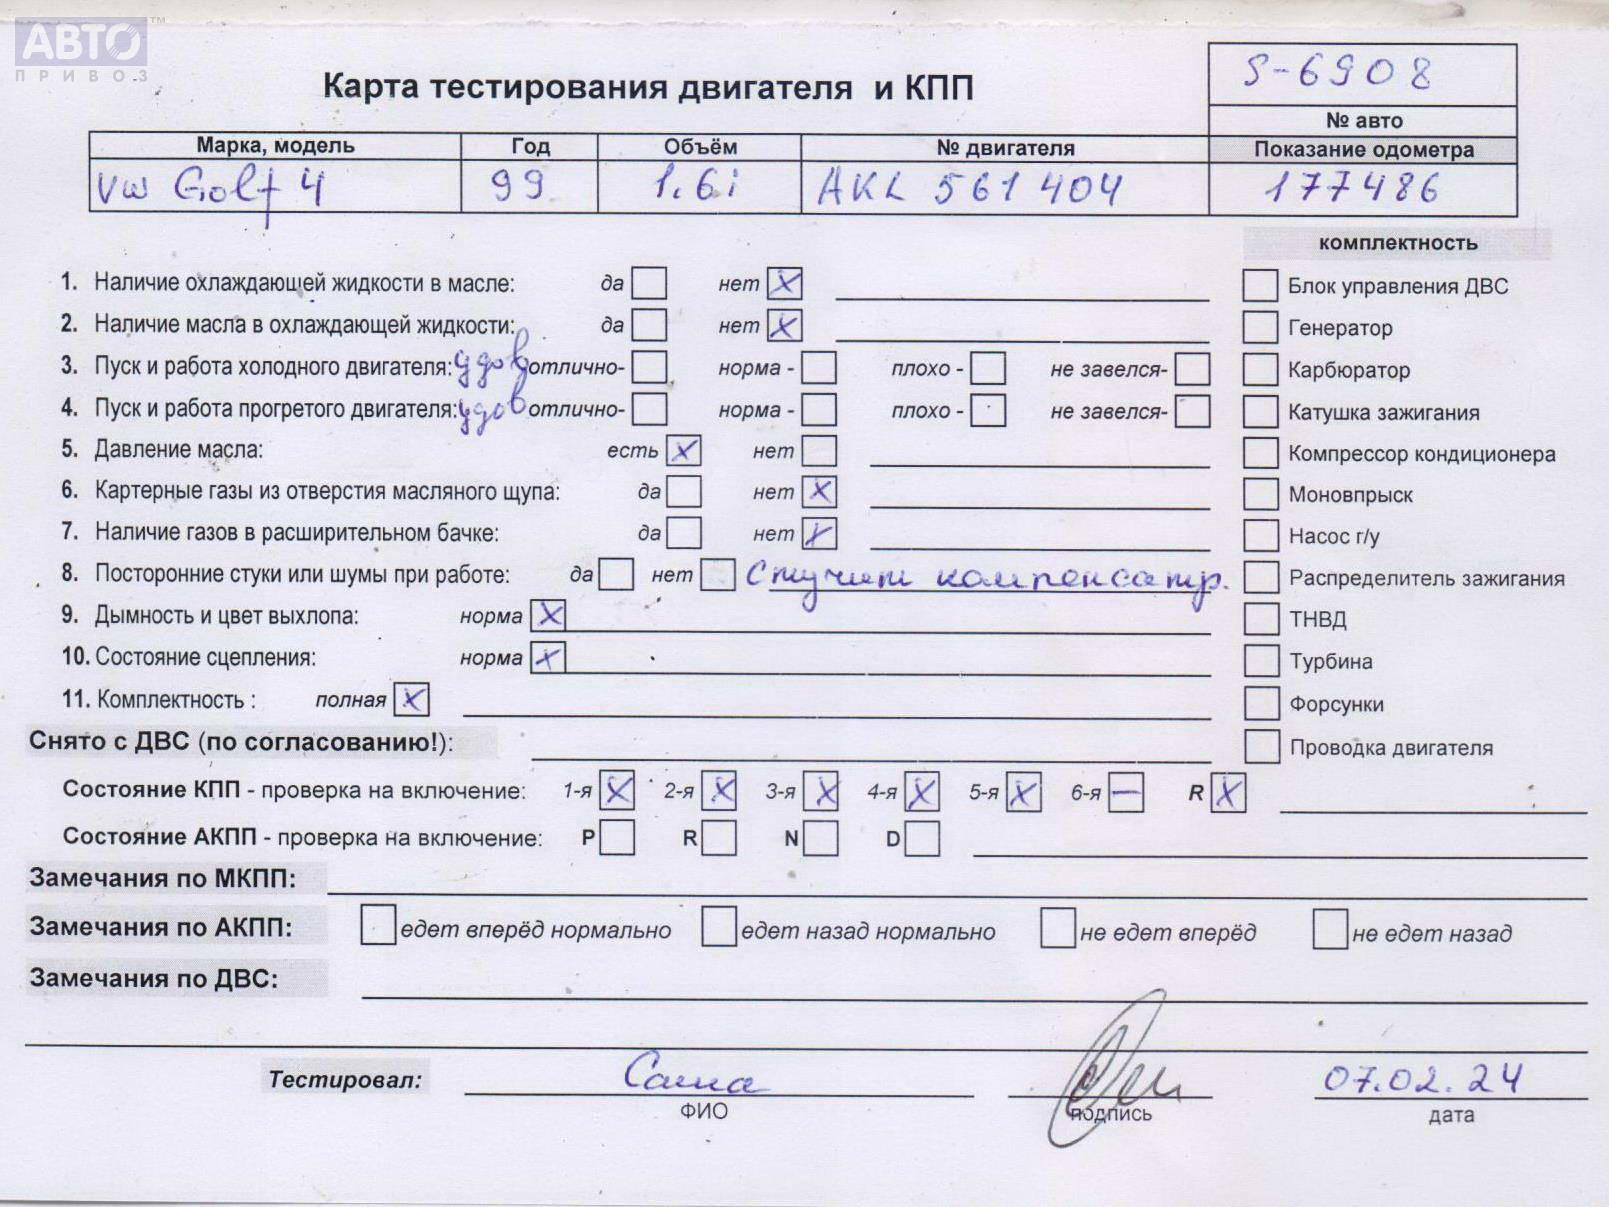 АВТО™
ПРИВОЗ
Карта тестирования двигателя и КПП
S-6908
№ авто
Марка, модель Год Объём № двигателя Показание одометра
VW Golf 4 99 1.6i AKL 561404 177486
комплектность
1. Наличие охлаждающей жидкости в масле: да нет X Блок управления ДВС
2. Наличие масла в охлаждающей жидкости: да нет X Генератор
3. Пуск и работа холодного двигателя: удов отлично- норма - плохо - не завелся- Карбюратор
4. Пуск и работа прогретого двигателя: удов отлично- норма - плохо - не завелся- Катушка зажигания
5. Давление масла: есть X нет Компрессор кондиционера
6. Картерные газы из отверстия масляного щупа: да нет X Моновпрыск
7. Наличие газов в расширительном бачке: да нет X Насос г/у
8. Посторонние стуки или шумы при работе: да нет Стучит компенсатр. Распределитель зажигания
9. Дымность и цвет выхлопа: норма X ТНВД
10. Состояние сцепления: норма X Турбина
11. Комплектность : полная X Форсунки
Снято с ДВС (по согласованию!): Проводка двигателя
Состояние КПП - проверка на включение: 1-я X 2-я X 3-я X 4-я X 5-я X 6-я — R X
Состояние АКПП - проверка на включение: P R N D
Замечания по МКПП:
Замечания по АКПП: едет вперёд нормально едет назад нормально не едет вперёд не едет назад
Замечания по ДВС:
Тестировал: Саша 07.02.24
ФИО подпись дата